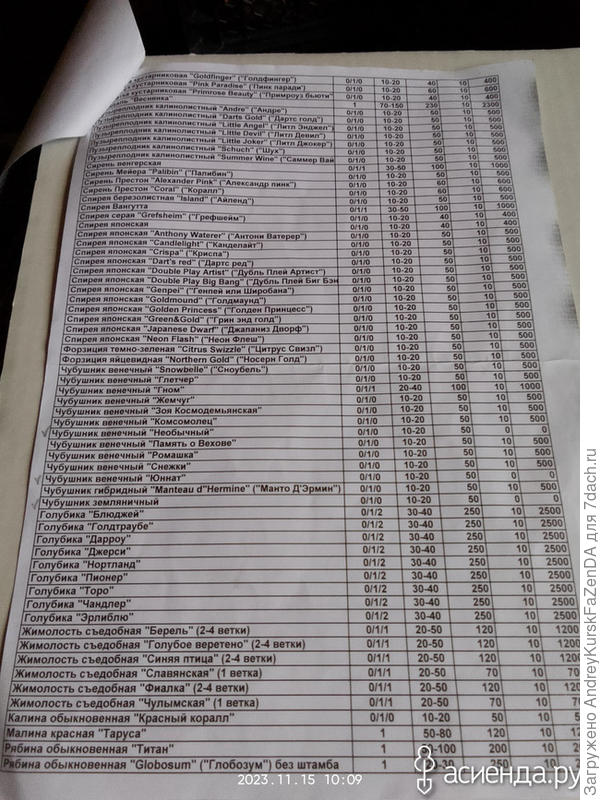 кустарниковая "Goldfinger" ("Голдфингер") 0/1/0 10-20 40 10 400
кустарниковая "Pink Paradise" ("Пинк паради") 0/1/0 10-20 60 10 600
кустарниковая "Primrose Beauty" ("Примроуз бьюти" 0/1/0 10-20 40 10 400
"Веснянка" 1 70-150 230 10 2300
Пузыреплодник калинолистный "Andre" ("Андре") 0/1/0 10-20 50 10 500
Пузыреплодник калинолистный "Darts Gold" ("Дартс голд") 0/1/0 10-20 50 10 500
Пузыреплодник калинолистный "Little Angel" ("Литл Энджел") 0/1/0 10-20 50 10 500
Пузыреплодник калинолистный "Little Devil" ("Литл Девил") 0/1/0 10-20 50 10 500
Пузыреплодник калинолистный "Little Joker" ("Литл Джокер") 0/1/0 10-20 50 10 500
Пузыреплодник калинолистный "Schuch" ("Шух") 0/1/0 10-20 50 10 500
Пузыреплодник калинолистный "Summer Wine" ("Саммер Вай 0/1/0 10-20 50 10 500
Сирень венгерская 0/1/1 30-50 100 10 1000
Сирень Мейера "Palibin" ("Палибин") 0/1/0 10-20 50 10 500
Сирень Престон "Alexander Pink" ("Александр пинк") 0/1/0 10-20 60 10 600
Сирень Престон "Coral" ("Коралл") 0/1/0 10-20 60 10 600
Спирея березолистная "Island" ("Айленд") 0/1/0 10-20 50 10 500
Спирея Вангутта 0/1/1 30-50 100 10 1000
Спирея серая "Grefsheim" ("Грефшейм") 0/1/0 10-20 40 10 400
Спирея японская 0/1/0 10-20 40 10 400
Спирея японская "Anthony Waterer" ("Антони Ватерер") 0/1/0 10-20 50 10 500
Спирея японская "Candlelight" ("Канделайт") 0/1/0 10-20 50 10 500
Спирея японская "Crispa" ("Криспа") 0/1/0 10-20 50 10 500
Спирея японская "Dart's red" ("Дартс ред") 0/1/0 10-20 50 10 500
Спирея японская "Double Play Artist" ("Дубль Плей Артист") 0/1/0 10-20 50 10 500
Спирея японская "Double Play Big Bang" ("Дубль Плей Биг Бэн 0/1/0 10-20 50 10 500
Спирея японская "Genpei" ("Генпей или Широбана") 0/1/0 10-20 50 10 500
Спирея японская "Goldmound" ("Голдмаунд") 0/1/0 10-20 50 10 500
Спирея японская "Golden Princess" ("Голден Принцесс") 0/1/0 10-20 50 10 500
Спирея японская "Green&Gold" ("Грин энд голд") 0/1/0 10-20 50 10 500
Спирея японская "Japanese Dwarf" ("Джапаниз Дворф") 0/1/0 10-20 50 10 500
Спирея японская "Neon Flash" ("Неон Флеш") 0/1/0 10-20 50 10 500
Форзиция темно-зеленая "Citrus Swizzle" ("Цитрус Свизл") 0/1/0 10-20 50 10 500
Форзиция яйцевидная "Northern Gold" ("Носерн Голд") 0/1/0 10-20 50 10 500
Чубушник венечный "Snowbelle" ("Сноубель") 0/1/0 10-20 50 10 500
Чубушник венечный "Глетчер" 0/1/0 10-20 50 10 500
Чубушник венечный "Гном" 0/1/1 20-40 100 10 1000
Чубушник венечный "Жемчуг" 0/1/0 10-20 50 10 500
Чубушник венечный "Зоя Космодемьянская" 0/1/0 10-20 50 10 500
Чубушник венечный "Комсомолец" 0/1/0 10-20 50 10 500
Чубушник венечный "Необычный" 0/1/0 10-20 50 0 0
Чубушник венечный "Память о Вехове" 0/1/0 10-20 50 10 500
Чубушник венечный "Ромашка" 0/1/0 10-20 50 10 500
Чубушник венечный "Снежки" 0/1/0 10-20 50 10 500
Чубушник венечный "Юннат" 0/1/0 10-20 50 0 0
Чубушник гибридный "Manteau d"Hermine" ("Манто Д'Эрмин") 0/1/0 10-20 50 10 500
Чубушник земляничный 0/1/0 10-20 50 0 0
Голубика "Блюджей" 0/1/2 30-40 250 10 2500
Голубика "Голдтраубе" 0/1/2 30-40 250 10 2500
Голубика "Дарроу" 0/1/2 30-40 250 10 2500
Голубика "Джерси" 0/1/2 30-40 250 10 2500
Голубика "Нортланд" 0/1/2 30-40 250 10 2500
Голубика "Пионер" 0/1/2 30-40 250 10 2500
Голубика "Торо" 0/1/2 30-40 250 10 2500
Голубика "Чандлер" 0/1/2 30-40 250 10 2500
Голубика "Эрлиблю" 0/1/2 30-40 250 10 2500
Жимолость съедобная "Берель" (2-4 ветки) 0/1/1 20-50 120 10 1200
Жимолость съедобная "Голубое веретено" (2-4 ветки) 0/1/1 20-50 120 10 1200
Жимолость съедобная "Синяя птица" (2-4 ветки) 0/1/1 20-50 120 10 120
Жимолость съедобная "Славянская" (1 ветка) 0/1/1 20-50 70 10 70
Жимолость съедобная "Фиалка" (2-4 ветки) 0/1/1 20-50 120 10 120
Жимолость съедобная "Чулымская" (1 ветка) 0/1/1 20-50 70 10 70
Калина обыкновенная "Красный коралл" 0/1/0 10-20 50 10 5
Малина красная "Таруса" 1 50-80 120 10 12
Рябина обыкновенная "Титан" 1 -100 200 10 2
Рябина обыкновенная "Globosum" ("Глобозум") без штамба 250
2023.11.15 10:09
асиенда.ру
Загружено AndreyKurskFaZenDA для 7dach.ru